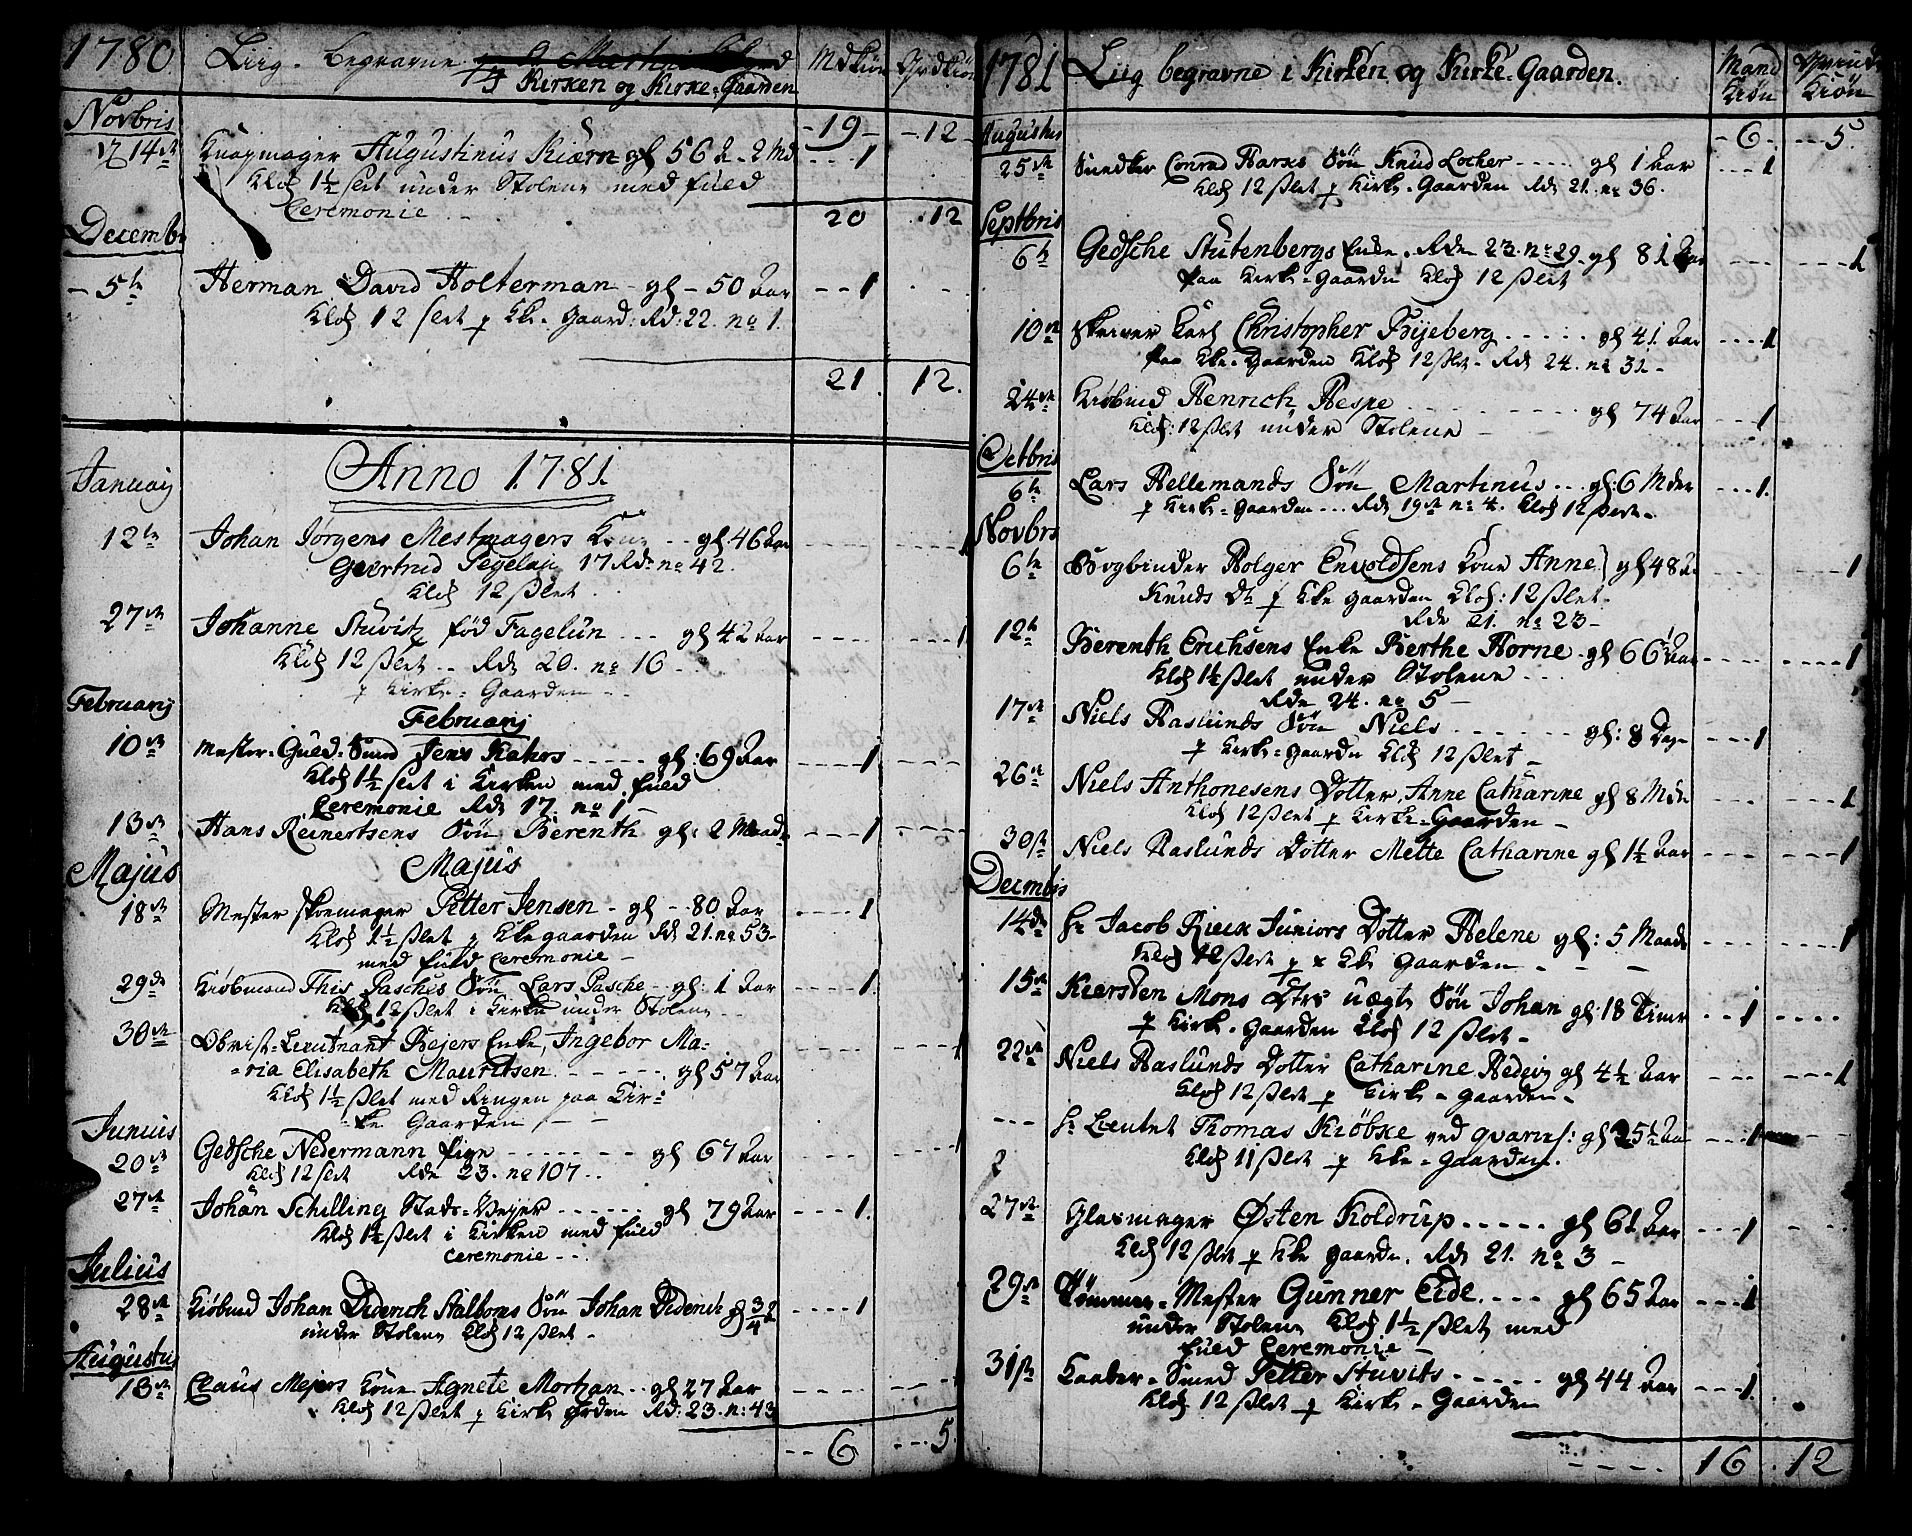 1780. Liig - begravne Mdkiön Qvdkiön
i Kirken og Kirke-Gaarden
Novbris - 19 - - 12 -
14de Knapmager Augustinus Kiærn gl 56 2 Md - - - 1
Klok 1½ slet under Stolene med fuld
Ceremonie - -
20 12
Decembr
- 5te Herman David Holterman - gl - 50 Aar - - 1
Klok 12 slet p Kke - Gaard: Rd: 22. no 1.
21. 12.
Anno 1781.
Januarij
12te Johan Jørgens Mestmagers Kone - - gl 46 Aar 1
Geertrud Segelau 17 Rd: no 42.
Klok 12 slet
27de Johanne Stuvitz fød Fagelun - - - gl 42 Aar - - - - 1
Klok 12 slet - - Rde 20. no 16 -
p Kirke - Gaarden - -
Februarij
Februarij
10de Mester - Guld - Smed Jens Kahrs - - - - - gl: 69 Aar - - - - 1
Klok 1½ slet i Kirken med fuld
Ceremonie Rde 17. no 1
13de Hans Reinertsens Søn Berenth gl: 2 Maade - - - 1
Majus
Majus
18de Mester Skoemager Petter Jensen - gl - - 80 Aar - - - - 1
Klok 1½ slet p Kke gaarden Rd 21. no 53 -
med fuld Ceremonie -
29de Kiøbmand This Paschis Søn Lars Pasche - - gl: 1 Aar - - - 1
Klok 12 slet i Kirken under Stolene
30de Obrist - Lieutnant Rejers Enke, Ingebor Ma -
- ria Elisabeth Mauritsen - - - - - gl 57 Aar 1
Klok 1½ slet med Ringen paa Kir -
- ke Gaarden - -
Junius
20de Gedsche Nedermann Pige - - - - - - gl 67 Aar 1
Klok 12 slet Rde 23. no 107 - -
27de Johan Schilling Stads - Vejer - - - - - - gl 79 Aar - - - 1.
Klok 1½ slet i Kirken med fuld
Ceremonie - - -
Julius
28de Kiøbmd Johan Diderich Stalborns Søn Johan Diderich gl ¾ A - - - - 1
under Stolene Klok 12 slet -
Augustus
13de Claus Mejers Kone Agnete Mortzan - - gl 27 Aar 1
Klok 12 slet p Kirke gorden Rd: 23. n: 43
- - 6 - - - 5.
1781 Liig begravne i Kirken og Kirke - Gaarden. Mand Kiön Qvinde Kiön
Augustus - 6. - - - 5.
25de Snedker Conrad Harms Søn Knud Locher - - - - - gl 1 Aar - - - 1
Klok 12 slet p Kirke - Gaarden Rde 21. no 36.
Septbris
6te Gedsche Stutenbergs Enke. Rde 23. no 29. gl 81 Aar - - - - - - 1
paa Kirke - Gaarden Klok 12 slet
10de Skriver Karl Christopher Frijeberg - - - - - gl 41 Aar - - - - 1
paa Kke - Gaarden Klok 12 slet - Rde 24. no 31 -
24de Kiøbmd Henrich Hespe - - - - - - gl 74 Aar - - - 1
Klok: 12 slet under Stolene -
Octbris
6te Lars Hellemands Søn Martinus - - - gl: 6 Mder - - - 1.
p Kirke - gaarden - - - Rde 19de no 4. Klok 12 slet -
Novbrs
6te Bogbinder Holger Envoldsens Kone Anne gl 48 A - - - - - 1
Knuds Dr p Kke gaarden Klok: 12 slet -
Rde 21. no 23 -
12te Berenth Erichsens Enke Berthe Horne - gl 66½ Aar - - - - - - - - 1
Klok 1½ slet under Stolene - - -
Rde 24. no 5 -
17de Niels Haslunds Søn Niels - - - - - - gl: 8 Dage - - - 1
p Kirke - gaarden Klok 12 slet -
26de Niels Anthonesens Dotter, Anne Catharine gl 8 Mdr - - - - - - 1
Klok 12 slet p Kirke - Gaarden -
30te Niels Haslunds Dotter Mette Catharine gl 1½ Aar - - - - - - 1
Decmbis
14de Hr Jacob Rieck Juniors Dotter Helene gl: 5 Maade - - - - - - 1
Klok 12 slet p Kke Gaarden - - -
15de Kiersten Mons Dtrs uægte Søn Johan gl: 18 Timer - - 1 - - - -
p Kirke - Gaarden Klok 12 slet -
22de Niels Haslunds Dotter Catharine Hedevig gl 4½ Aar - - - - - - 1
Klok 12 slet p Kirke - Gaarden -
- - - Hr Lieutnt Thomas Kiøbke ved gvarnis: gl 25½ Aar - - - 1
Klok 11 slet p Kke - Gaarden.
27de Glasmager Østen Koldrup - - - - - gl 61 Aar - - - 1
Klok 12 slet p Kke gaarden. Rde 21. no 3 -
29de Tømmer - Mester Gunner Eide - - - - gl 65 Aar - - - 1
under Stolene Klok 1½ slet, med
fuld Ceremonie -
31te Kaaber - Smed Petter Stuvits - - - - - gl 44 Aar - - - 1.
Klok 12 slet p Kirke - Gaarden
16 12